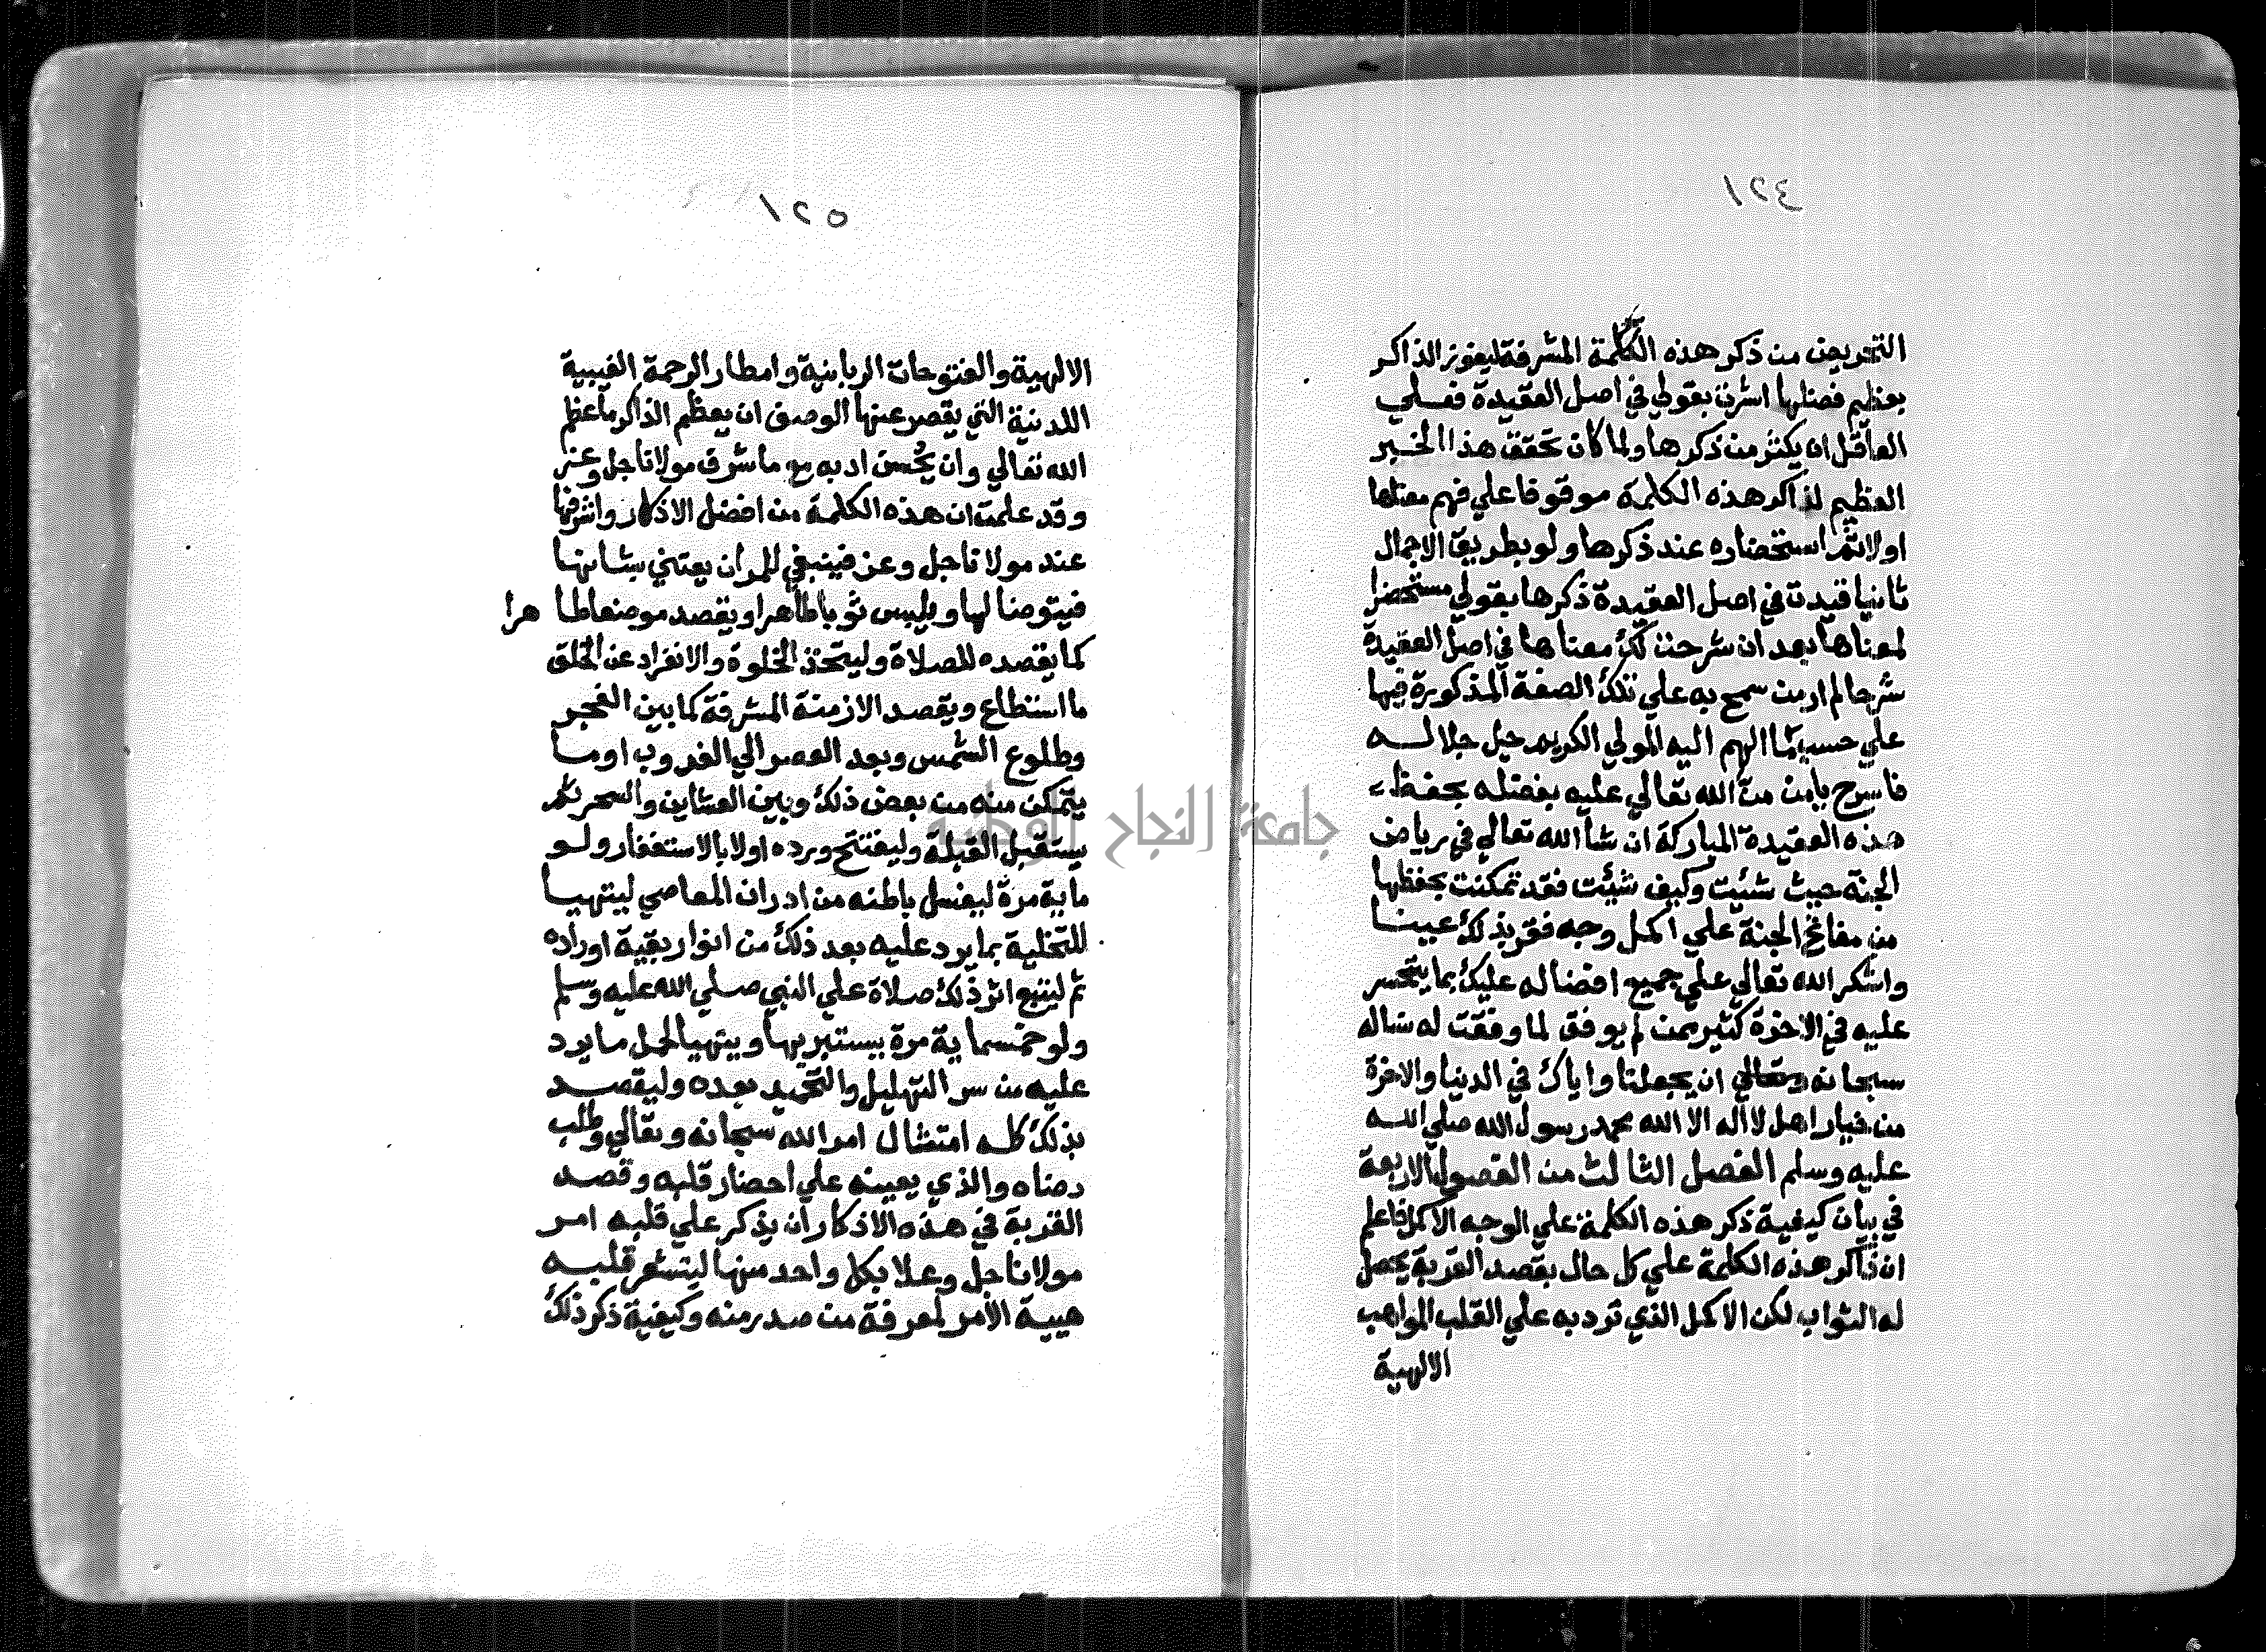 ١٢٤
التحريض من ذكر هذه الكلمة المشرفة ليفوز الذاكر
بعظيم فضلها اشرت بقولي في اصل العقيدة فعلي
العاقل ان يكثر من ذكرها ولما كان تحقق هذا الخير
العظيم لذاكر هذه الكلمة موقوفا علي فهم معناها
اولا ثم استحضاره عند ذكرها ولو بطريق الاجمال
ثانيا قيدت في اصل العقيدة ذكرها بقولي مستحضرا
لمعناها بعد ان شرحت لك معناها في اصل العقيدة
شرحا لم ار من سمح به علي تلك الصفة المذكورة فيها
علي حسب ما الهم اليه المولي الكريم جل جلاله
فاسرح يا من منّ الله تعالي عليه بفضله بحفظ
هذه العقيدة المباركة ان شا الله تعالي في رياض
الجنة حيث شئت وكيف شئت فقد تمكنت بحفظها
من مفاتح الجنة علي اكمل وجه فقر بذلك عينا
واشكر الله تعالي علي جميع افضاله عليك بما يتحسر
عليه في الاخرة كثير ممن لم يوفق لما وفقت له نساله
سبحانه وتعالي ان يجعلنا واياك في الدنيا والاخرة
من خيار اهل لا اله الا الله محمد رسول الله صلي الله
عليه وسلم الفصل الثالث من الفصول الاربعة
في بيان كيفية ذكر هذه الكلمة علي الوجه الاكمل فاعلم
ان ذاكر هذه الكلمة علي كل حال بقصد القربة يحصل
له الثواب لكن الاكمل الذي ترد به علي القلب المواهب
الالهية
١٢٥
الالهية والفتوحات الربانية وامطار الرحمة الغيبية
اللدنية التي يقصر عنها الوصف ان يعظم الذاكر ما عظم
الله تعالي وان يحُسن ادبه مع ما شرف مولانا جل وعز
وقد علمت ان هذه الكلمة من افضل الاذكار واشرفها
عند مولانا جل وعز فينبغي للمر ان يعتني بشانها
فيتوضا لها ويلبس ثوبا طاهرا ويقصد موضعا طا هرا
كما يقصده للصلاة وليتخذ الخلوة والانفراد عن الخلق
ما استطاع ويقصد الازمنة المشرفة كما بين الفجر
وطلوع الشمس وبعد العصر الي الغروب او ما
يتمكن منه من بعض ذلك وبين العشاين والسحر ثم
يستقبل القبلة وليفتتح ورده اولا بالاستغفار ولو
ماية مرة ليغسل باطنه من ادران المعاصي ليتهيا
للتخلية بما يرد عليه بعد ذلك من انوار بقية اوراده
ثم ليتبع اثر ذلك صلاة علي النبي صلي الله عليه وسلم
ولو خمسماية مرة يستنير بها ويتهيا لحمل ما يرد
عليه من سر التهليل والتحميد بعده وليقصد
بذلك كله امتثال امر الله سبحانه وتعالي وطلب
رضاه والذي يعينه علي احضار قلبه وقصد
القربة في هذه الاذكار ان يذكر علي قلبه امر
مولانا جل وعلا بكل واحد منها ليتشعر قلبه
هيبة الامر لمعرفة من صدر منه وكيفية ذكر ذلك
جامعة النجاح الوطنية